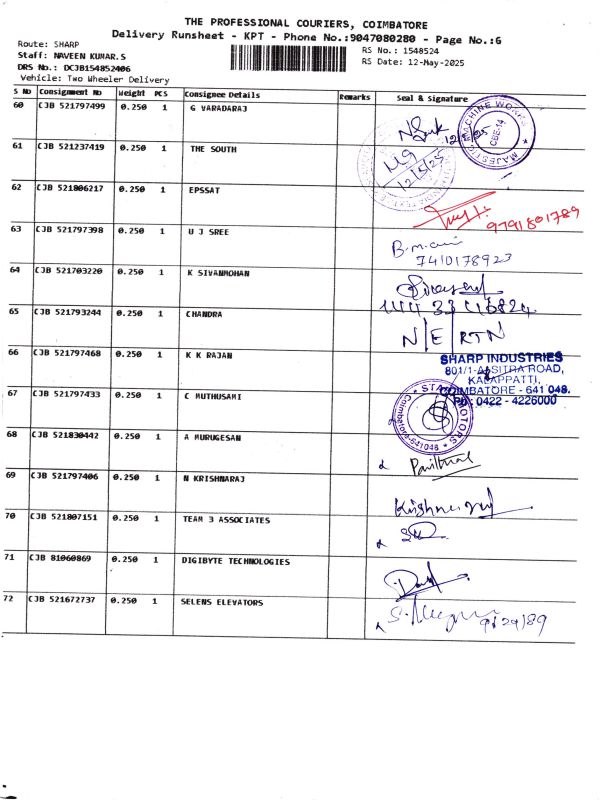 THE PROFESSIONAL COURIERS, COIMBATORE
Delivery Runsheet - KPT - Phone No.:9047080280 - Page No.:6
Route: SHARP
Staff: NAVEEN KUMAR.S
DRS No.: DCJB154852406
Vehicle: Two Wheeler Delivery
RS No.: 1548524
RS Date: 12-May-2025
S No Consignment No Weight PCS Consignee Details Remarks Seal & Signature
60 CJB 521797499 0.250 1 G VARADARAJ
MAJESTIC MACHINE WORKS
CBE-14
61 CJB 521237419 0.250 1 THE SOUTH
12/5/25
62 CJB 521806217 0.250 1 EPSSAT
9791801789
63 CJB 521797398 0.250 1 U J SREE
B.m.ani
7410178923
64 CJB 521703220 0.250 1 K SIVANMOHAN
65 CJB 521793244 0.250 1 CHANDRA
N/E/RTN
66 CJB 521797468 0.250 1 K K RAJAN
SHARP INDUSTRIES
801/1-A, SITRA ROAD,
KALAPPATTI,
COIMBATORE - 641 048.
PH : 0422 - 4226000
67 CJB 521797433 0.250 1 C MUTHUSAMI
STAR MOTORS
Coimbatore-641048
68 CJB 521830442 0.250 1 A MURUGESAN
69 CJB 521797406 0.250 1 N KRISHNARAJ
Krishnaraj
70 CJB 521807151 0.250 1 TEAM 3 ASSOCIATES
71 CJB 81060869 0.250 1 DIGIBYTE TECHNOLOGIES
72 CJB 521672737 0.250 1 SELENS ELEVATORS